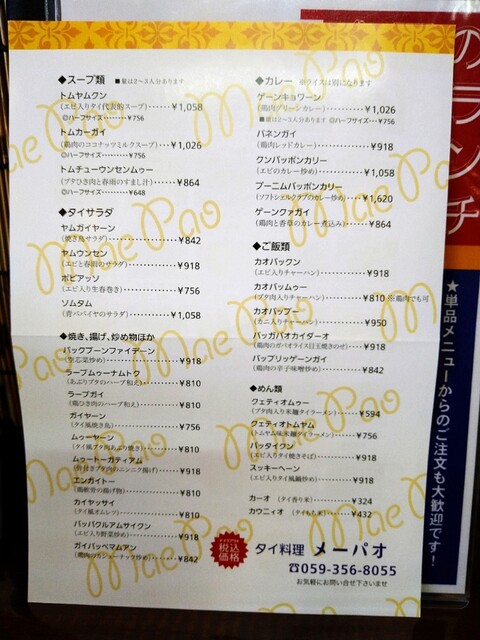 ◆スープ類 ■量は2〜3人分あります
トムヤムクン
(エビ入りタイ代表的スープ)‥‥‥¥1,058
◎ハーフサイズ‥‥‥‥¥756
トムカーガイ
(鶏肉のココナッツミルクスープ)‥‥‥¥1,026
◎ハーフサイズ‥‥‥‥¥756
トムチューウンセンムゥー
(ブタひき肉と春雨のすまし汁)‥‥‥¥864
◎ハーフサイズ‥‥‥‥¥648
◆タイサラダ
ヤムガイヤーン
(焼き鳥サラダ)‥‥‥¥842
ヤムウンセン
(エビと春雨のサラダ)‥‥‥¥918
ポピアッソ
(エビ入り生春巻き)‥‥‥¥756
ソムタム
(青パパイヤのサラダ)‥‥‥¥1,058
◆焼き、揚げ、炒め物ほか
パックブーンファイデーン
(空芯菜炒め)‥‥‥¥918
ラープムゥーナムトク
(あぶりブタのハーブ和え)‥‥‥¥810
ラープガイ
(鶏ひき肉のハーブ和え)‥‥‥¥810
ガイヤーン
(タイ風焼き鳥)‥‥‥¥756
ムゥーヤーン
(タイ風ブタ肉あぶり焼き)‥‥‥¥810
ムゥートーガティアム
(骨付きブタ肉のニンニク揚げ)‥‥‥¥918
エンガイトー
(鶏軟骨の揚げ物)‥‥‥¥810
カイヤッサイ
(タイ風オムレツ)‥‥‥¥810
パッパクルアムサイクン
(エビ入り野菜炒め)‥‥‥¥918
ガイパッペマムアン
(鶏肉のカシューナッツ炒め)‥‥‥¥842
◆カレー ※ライスは別になります
ゲーンキョワーン
(鶏肉グリーンカレー)‥‥‥¥1,026
■量は2〜3人分あります ◎ハーフサイズ‥‥‥¥756
パネンガイ
(鶏肉レッドカレー)‥‥‥¥918
クンパッポンカリー
(エビのカレー炒め)‥‥‥¥1,058
プーニムパッポンカリー
(ソフトシェルクラブのカレー炒め)‥‥‥¥1,620
ゲーンクァガイ
(鶏肉と香草のカレー煮込み)‥‥‥¥864
◆ご飯類
カオパックン
(エビ入りチャーハン)‥‥‥¥918
カオパッムゥー
(ブタ肉入りチャーハン)‥‥‥¥810 ※鶏肉でも可
カオパップー
(カニ入りチャーハン)‥‥‥¥950
パッガパオカイダーオ
(鶏肉のガパオライス目玉焼きのせ)‥‥‥¥918
パップリッゲーンガイ
(鶏肉の辛子味噌炒め)‥‥‥¥842
◆めん類
クェティオムゥー
(ブタ肉入り米麺タイラーメン)‥‥‥¥594
クェティオトムヤム
(トムヤム味米麺タイラーメン)‥‥‥¥756
パッタイクン
(エビ入りタイ焼きそば)‥‥‥¥918
スッキーヘーン
(エビ入りタイ風鍋炒め)‥‥‥¥918
カーオ (タイ香り米)‥‥‥¥324
カウニィオ (タイもち米)‥‥‥¥432
税込
価格
タイ料理 メーパオ
☎059-356-8055
お気軽にお問い合せ下さいませ
Mae Pao
のランチ
★単品メニューからのご注文も大歓迎です!